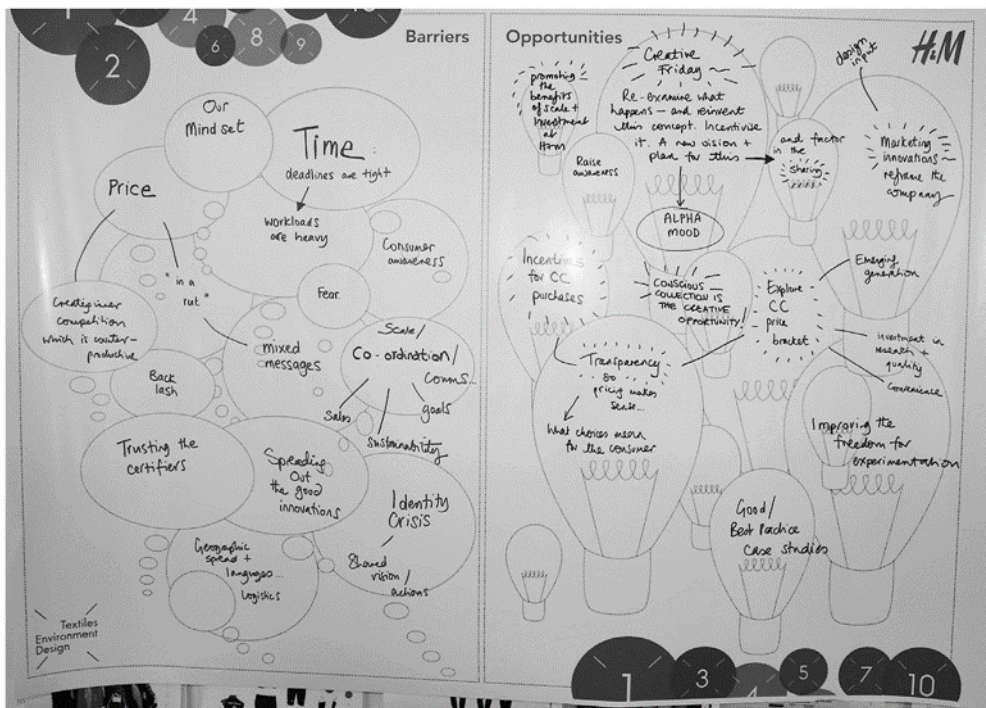 1
4
10
2
6
8
9
Barriers
Our
Mind set
Time
deadlines are tight
workloads
are heavy
Price
"in a
rut"
Consumer
awareness
Fear
Create inner
competition
which is counter-
productive
mixed
messages
Scale/
Co-ordination/
comms...
goals
Sales
Sustainability
Back
lash
Trusting the
certifiers
Spreading
Out
the good
innovations
Identity
Crisis
Shared
vision/
actions
Geographic
spread +
languages...
logistics
Textiles
Environment
Design
Opportunities
H&M
promoting
the
benefits
of scale +
investment
at
H&M
Creative
Friday
Re-examine what
happens – and reinvent
this concept. Incentivise
it. A new vision +
plan for this
and factor
in the
sharing
design
input
Marketing
innovations
reframe the
company
Raise
awareness
ALPHA
MOOD
Incentives
for CC
purchases
CONSCIOUS
COLLECTION IS
THE CREATIVE
OPPORTUNITY!
Explore
CC
price
bracket
Emerging
generation
investment in
research +
quality
Convenience
Transparency
so
pricing makes
sense...
What choices mean
for the consumer
Improving the
freedom for
experimentation
Good/
Best Practice
case studies
1
3
4
5
7
10